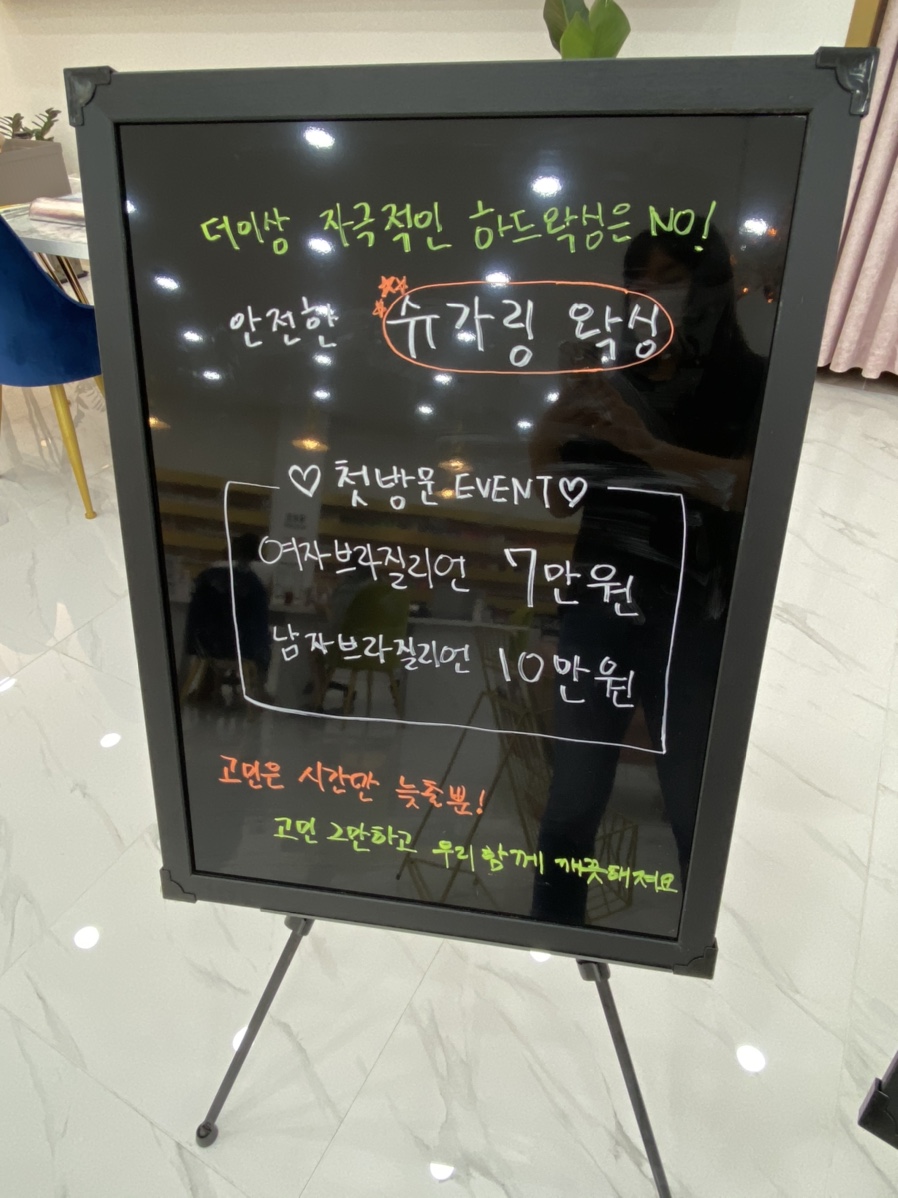 더이상 자극적인 하드왁싱은 NO!
안전한 슈가링 왁싱
♡첫방문 EVENT♡
여자브라질리언 7만원
남자브라질리언 10만원
고민은 시간만 늦출뿐!
고민 그만하고 우리함께 깨끗해져요